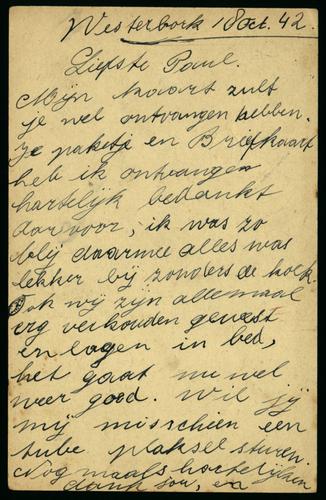 Westerbork 18 Oct. 42.
Liefste Paul.
Mijn kaart zult
je wel ontvangen hebben.
Je paketje en Briefkaart
heb ik ontvangen
hartelijk bedankt
daarvoor, ik was zo
blij daarmee alles was
lekker bij zonders de koek.
Ook wij zijn allemaal
erg verkouden geweest
en lagen in bed,
het gaat nu wel
weer goed. Wil jij
mij misschien een
tube plaksel sturen.
Nog maals hartelijken
dank hou, en